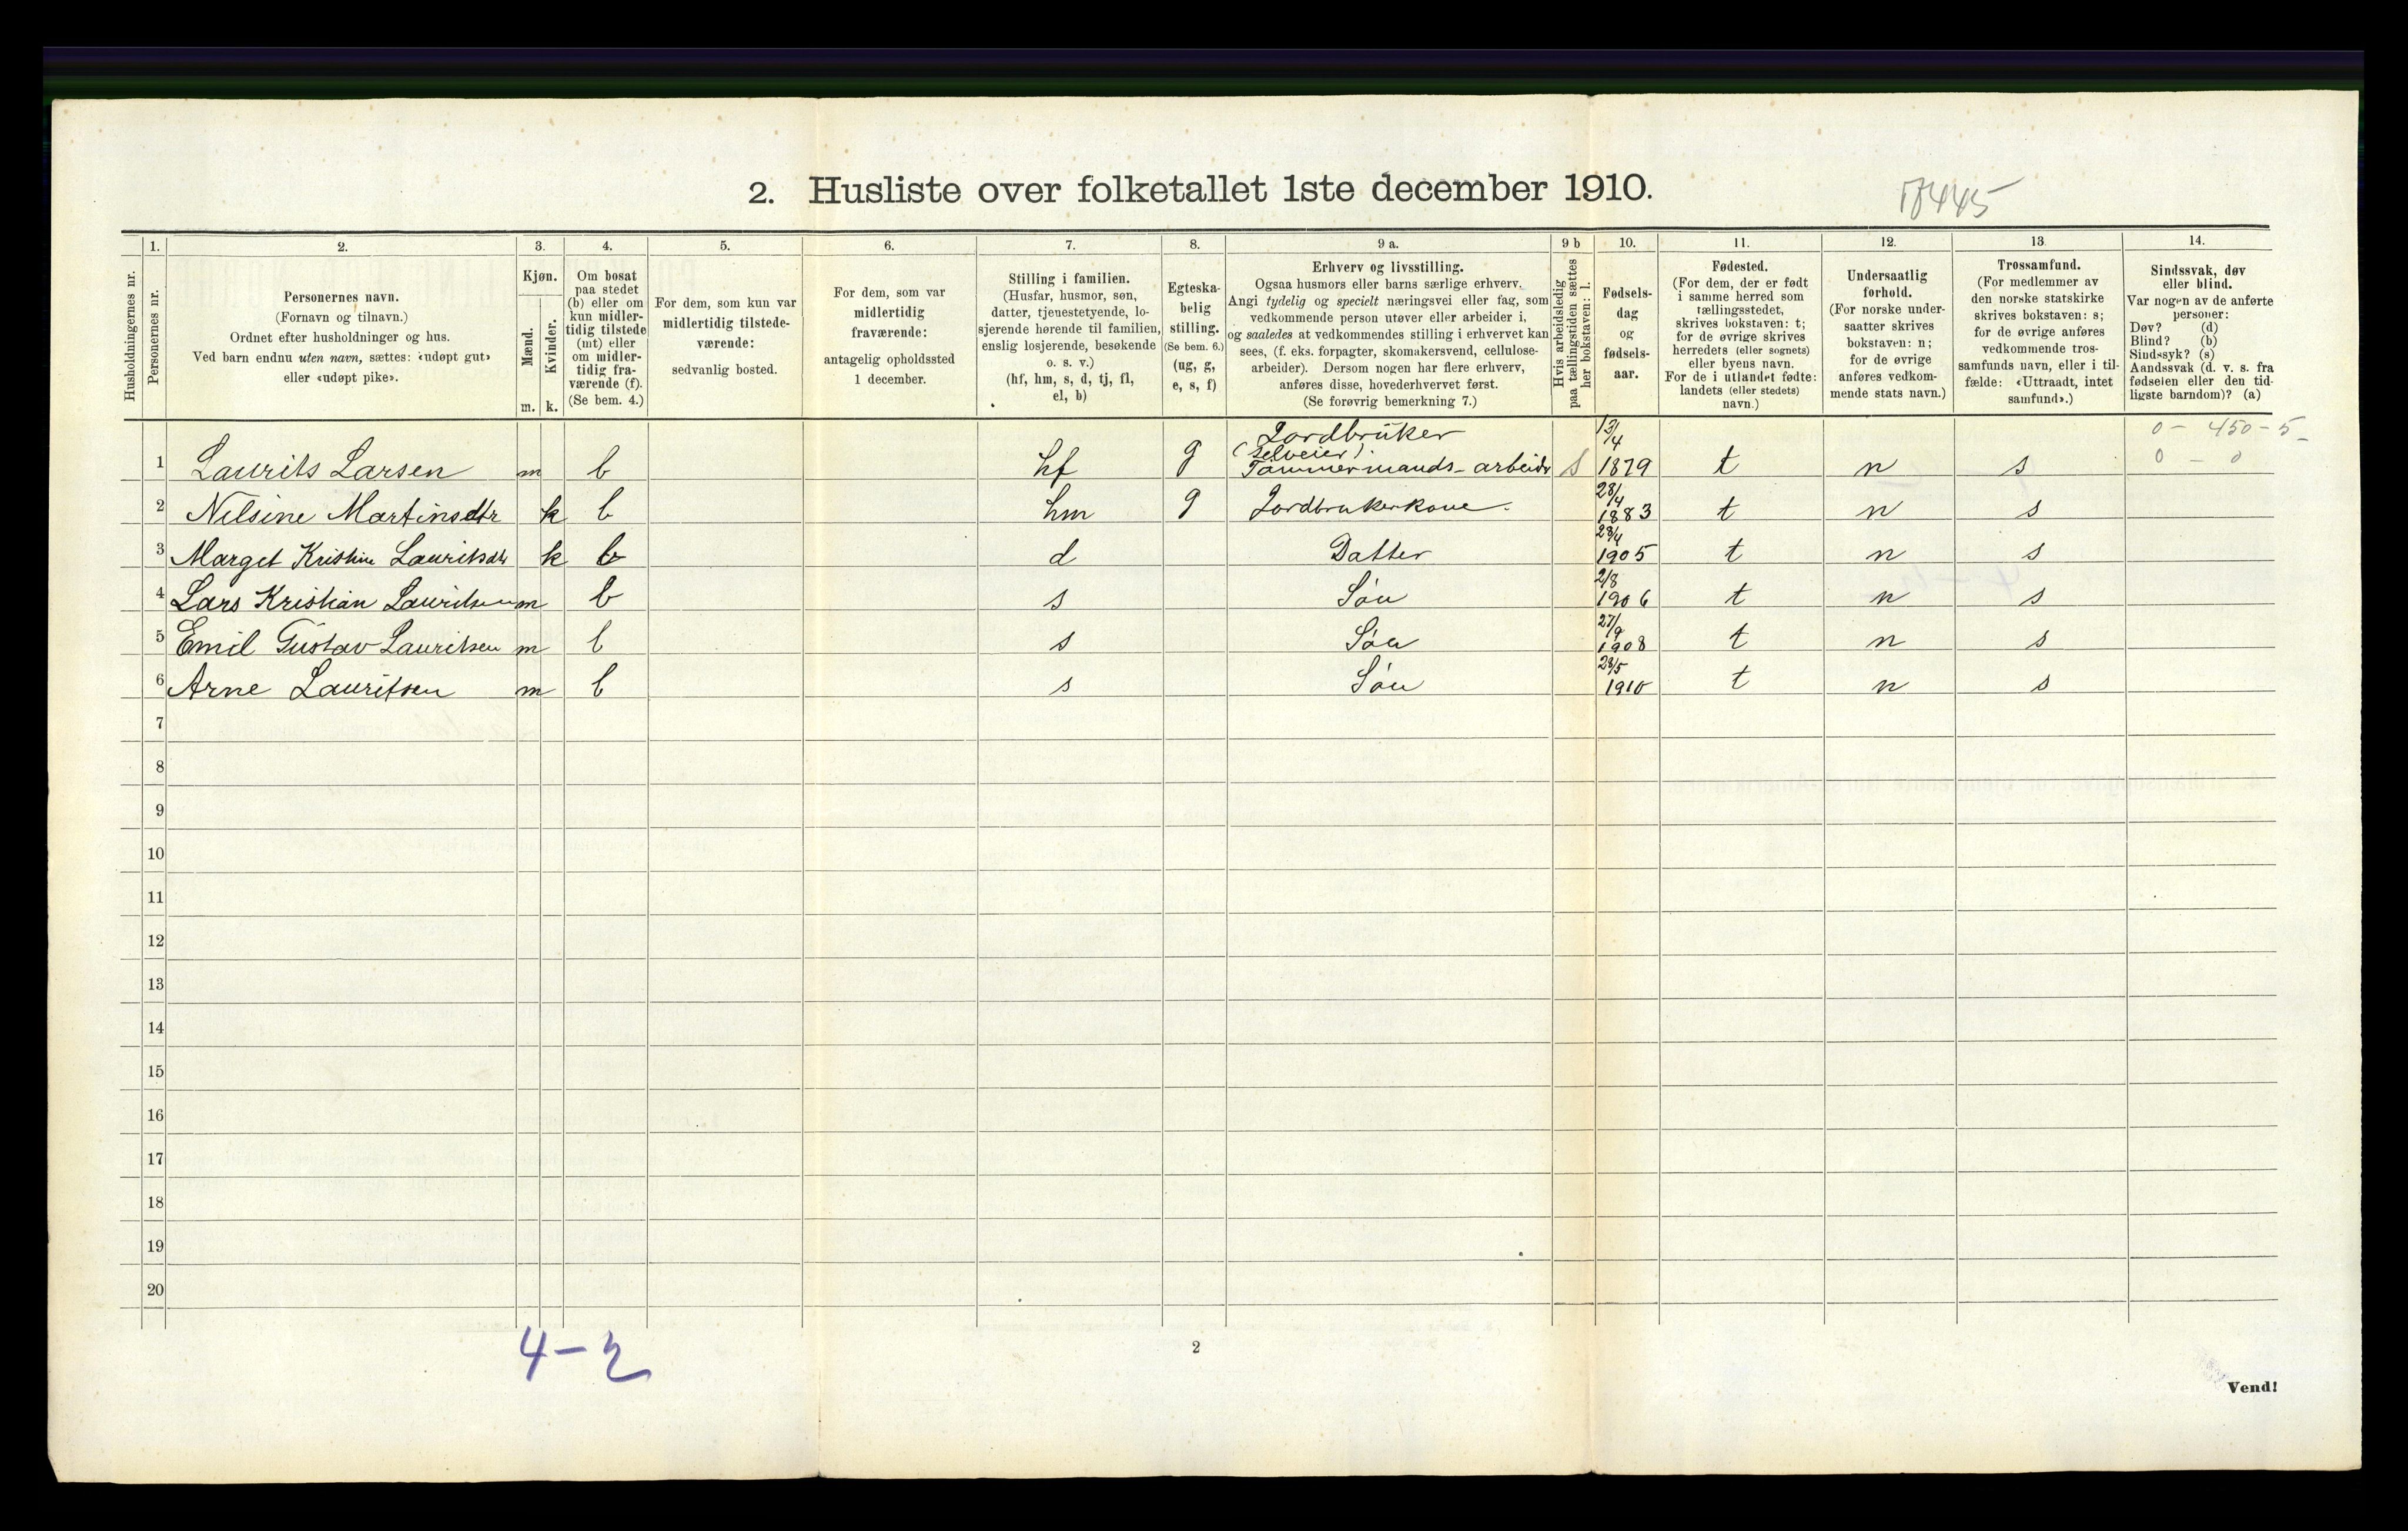 2. Husliste over folketallet 1ste december 1910.
Husholdningernes nr.
1. Personernes nr.
2.
Personernes navn.
(Fornavn og tilnavn.)
Ordnet efter husholdninger og hus.
Ved barn endnu uten navn, sættes: «udøpt gut»
eller «udøpt pike».
3.
Kjøn.
Mænd. Kvinder.
m. k.
4.
Om bosat
paa stedet
(b) eller om
kun midler-
tidig tilstede
(mt) eller
om midler-
tidig fra-
værende (f).
(Se bem. 4.)
5.
For dem, som kun var
midlertidig tilstede-
værende:
sedvanlig bosted.
6.
For dem, som var
midlertidig
fraværende:
antagelig opholdssted
1 december.
7.
Stilling i familien.
(Husfar, husmor, søn,
datter, tjenestetyende, lo-
sjerende hørende til familien,
enslig losjerende, besøkende
o. s. v.)
(hf, hm, s, d, tj, fl,
el, b)
8.
Egteska-
belig
stilling.
(Se bem. 6.)
(ug, g,
e, s, f)
9 a.
Erhverv og livsstilling.
Ogsaa husmors eller barns særlige erhverv.
Angi tydelig og specielt næringsvei eller fag, som
vedkommende person utøver eller arbeider i,
og saaledes at vedkommendes stilling i erhvervet kan
sees, (f. eks. forpagter, skomakersvend, cellulose-
arbeider). Dersom nogen har flere erhverv,
anføres disse, hovederhvervet først.
(Se forøvrig bemerkning 7.)
9 b
Hvis arbeidsledig
paa tællingstiden sættes
her bokstaven: l.
10.
Fødsels-
dag
og
fødsels-
aar.
11.
Fødested.
(For dem, der er født
i samme herred som
tællingsstedet,
skrives bokstaven: t;
for de øvrige skrives
herredets (eller sognets)
eller byens navn.
For de i utlandet fødte:
landets (eller stedets)
navn.)
12.
Undersaatlig
forhold.
(For norske under-
saatter skrives
bokstaven: n;
for de øvrige
anføres vedkom-
mende stats navn.)
13.
Trossamfund.
(For medlemmer av
den norske statskirke
skrives bokstaven: s;
for de øvrige anføres
vedkommende tros-
samfunds navn, eller i til-
fælde: «Uttraadt, intet
samfund».)
14.
Sindssvak, døv
eller blind.
Var nogen av de anførte
personer:
Døv? (d)
Blind? (b)
Sindssyk? (s)
Aandssvak (d. v. s. fra
fødselen eller den tid-
ligste barndom)? (a)
Jordbruker 13/4 0 - 450 - 5 -
(Selveier)
1 Laurits Larsen m b hf g Tømmermands-arbeide 1879 t n s 0 - 0
28/4
2 Nilsine Martinsdtr k b hm g Jordbrukerkone. 1883 t n s
3 Marget Kristine Lauritsdtr k b d Datter 1905 t n s
2/8
4 Lars Kristian Lauritsen m b s Søn 1906 t n s
27/9
5 Emil Gustav Lauritsen m b s Søn 1908 t n s
28/5
6 Arne Lauritsen m b s Søn 1910 t n s
7
8
9
10
11
12
13
14
15
16
17
18
19
20
4-2
2
Vend!